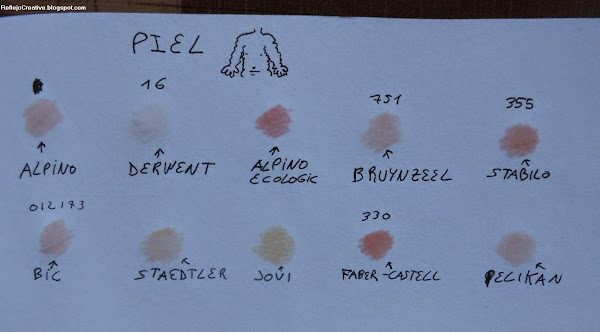 ReflejoCreative.blogspot.com
PIEL
16
751
355
ALPINO
DERWENT
ALPINO
ECOLOGIC
BRUYNZEEL
STABILO
012173
330
BIC
STAEDTLER
JOVI
FABER-CASTELL
PELIKAN